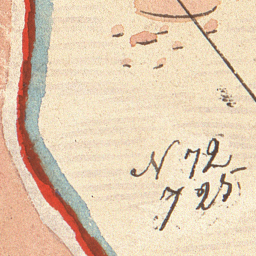 N 72
7 25